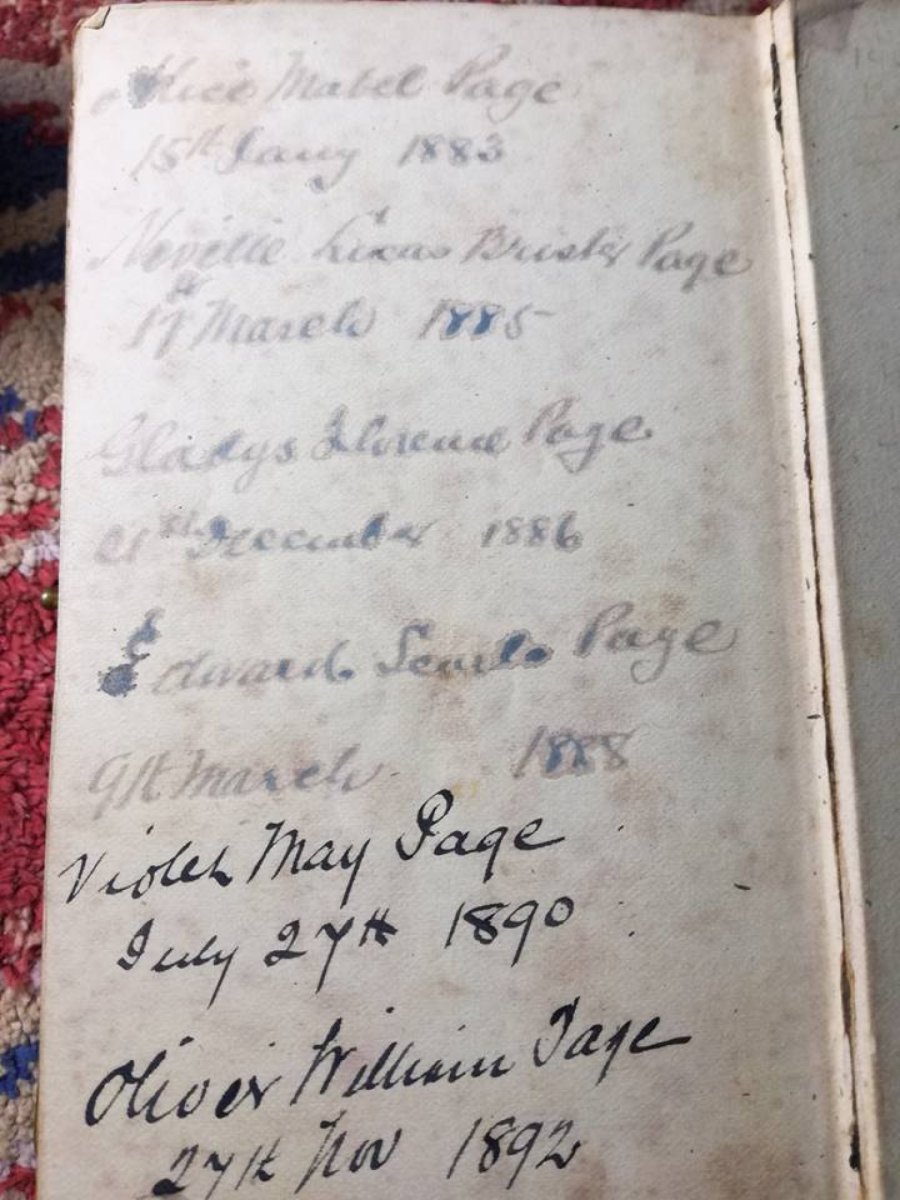 Alice Mabel Page
15th Jany 1883
Neville Lucas Brister Page
17th March 1885
Gladys Florence Page
21st December 1886
Edward Searle Page
9th March 1888
Violet May Page
July 27th 1890
Oliver William Page
27th Nov 1892